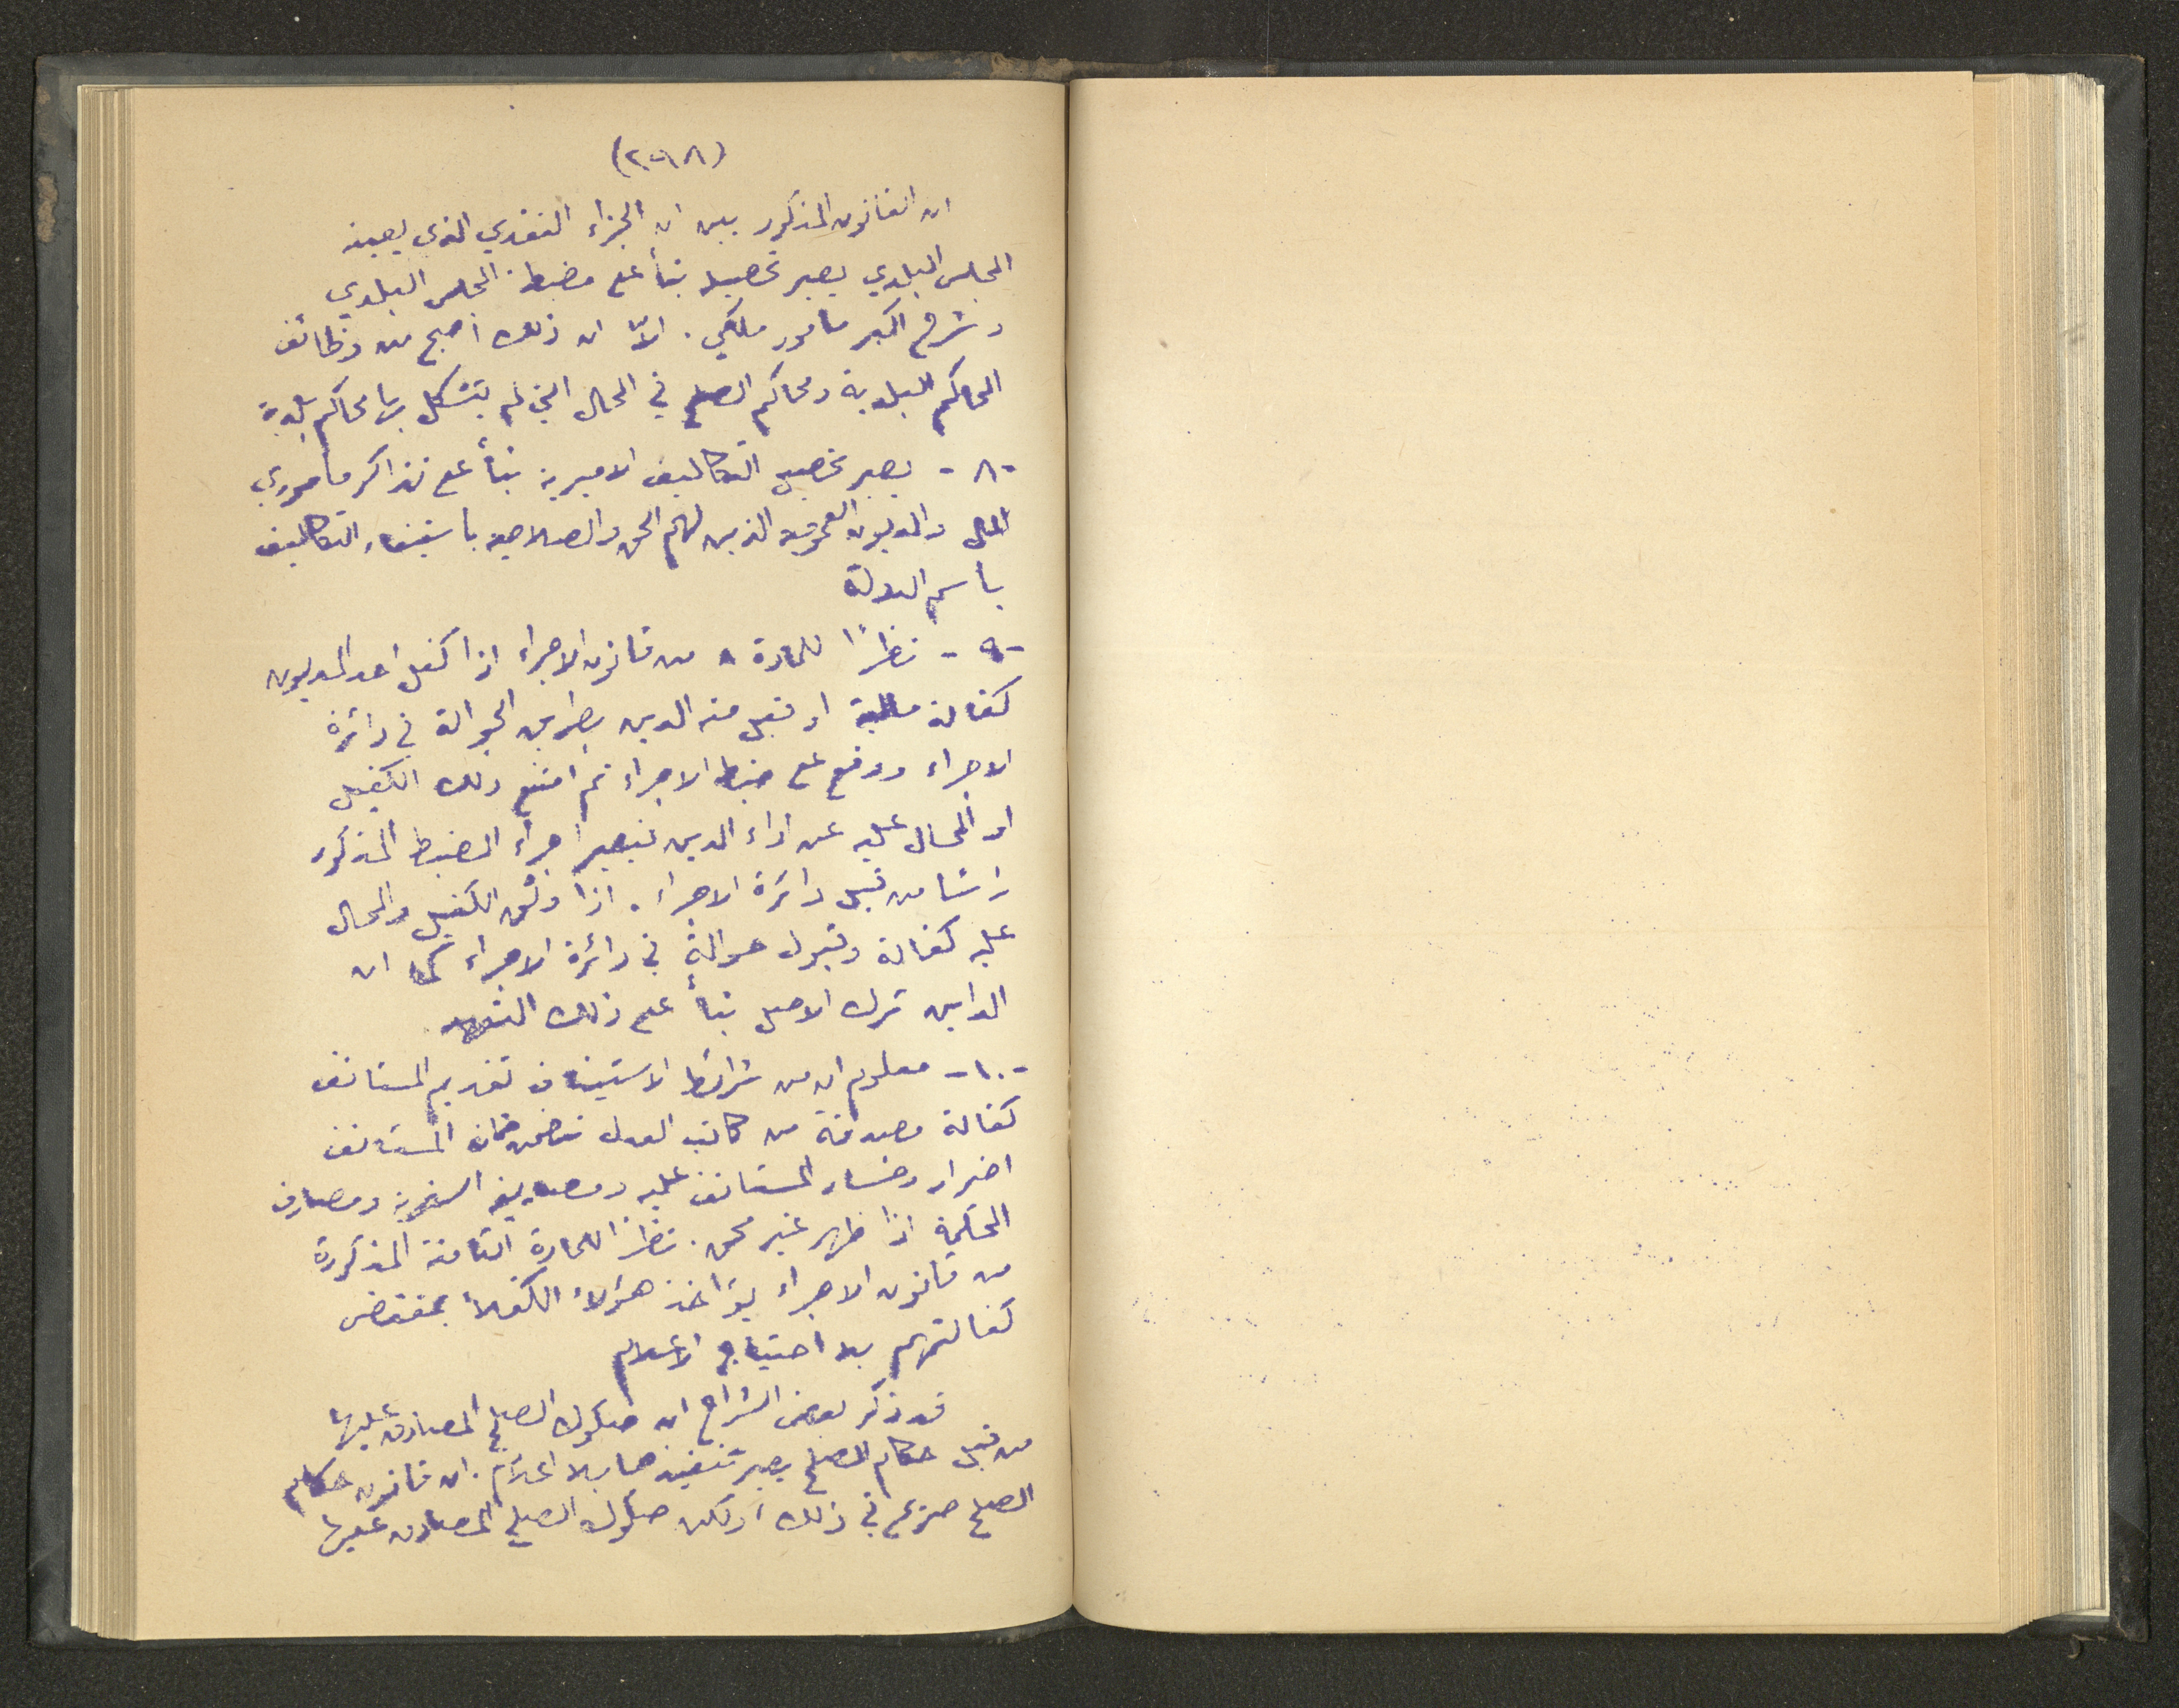 (٢٩٨)
ان القانون المذكور يبين ان الجزاء النقدي الذي يعينه
المجلس البلدي يصير تحصيله بنأ على مضبطة المجلس البلدي
وشرح اكبر مأمور ملكي . الاّ ان ذلك اصبح من وظائف
المحاكم البلدية ومحاكم الصلح في المحال التي لم يتشكل بها محاكم بلدية
-٨- يصير تحصيل التكاليف الاميرية بنأ على تذاكر مأموري
المال والمديون العموميه الذين لهم الحق والصلاحيه بأستيفاء التكاليف
بأسم الدولة
-٩- نظرًا للمادة ٨ من قانون الاجراء اذا كفل احد المديون
كفالة مالية او قبل منه الدين بطريق الحوالة في دائرة
الاجراء ووقع على ضبط الاجراء ثم امتنع ذلك الكفيل
او المحال عليه عن اداء الدين فيصير اجراء الضبط المذكور
رأسًا من قبل دائرة الاجراء . اذا وثق الكفيل والمحال
عليه كفالة وقبول حوالةٍ في دائرة الاجراء كما ان
الداين ترك الاصل بنأ على ذلك التعهد
-١٠- معلوم ان من شرائط الاستيناف تقديم المستانف
كفالة مصدقة من كاتب العدل تتضمن ضمان المستانف
اضرار وخسار المستانف عليه ومصاريف السفرية ومصارف
المحكمة اذا ظهر غير محق . نظرًا للمادة الثامنة المذكورة
من قانون الاجراء يؤاخذ هؤلاء الكفلأ بمقتضى
كفالتهم بلا احتياج الاعلام
قد ذكر بعض الشراح ان صكوك الصلح المصادق عليها
من قبل حكام الصلح يصير تنفيذها بلا اعلام . ان قانون حكام
الصلح صريح في ذلك ولكن صكوك الصلح المصادق عليها